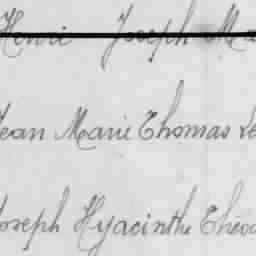 Henri Joseph M
Jean Marie Thomas Le
Joseph Hyacinthe Théod